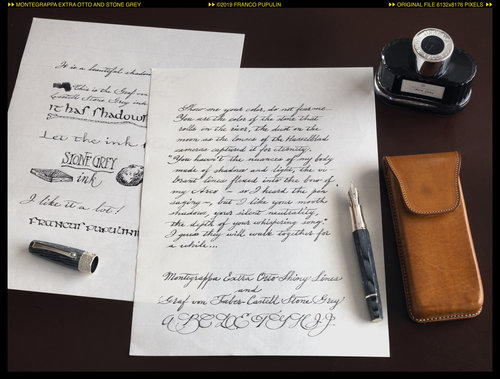 MONTEGRAPPA EXTRA OTTO AND STONE GREY
©2019 FRANCO PUPULIN
ORIGINAL FILE 6132x8176 PIXELS
It is a beautiful shadow
this is the Graf von
Castell Stone Grey ink
it has shadow
Let the ink
STONE GREY
ink
I like it a lot!
FRANCO PUPULIN
Show me your color, do not fear me.
You are the color of the stone that
rolls in the river, the dust on the
moon as the lences of the Hasselblad
cameras captured it for eternity.
"You haven't the nuances of my body
made of shadow and light, the vi-
brant lines flexed into the bow of
my Arco" – so I heard the pen
saying –, but I like your
shadow, your silent neutrality,
the depth of your whispering song."
I guess they will walk together for
a while...
Montegrappa Extra Otto Shiny Lines
and
Graf von Faber-Castell Stone Grey